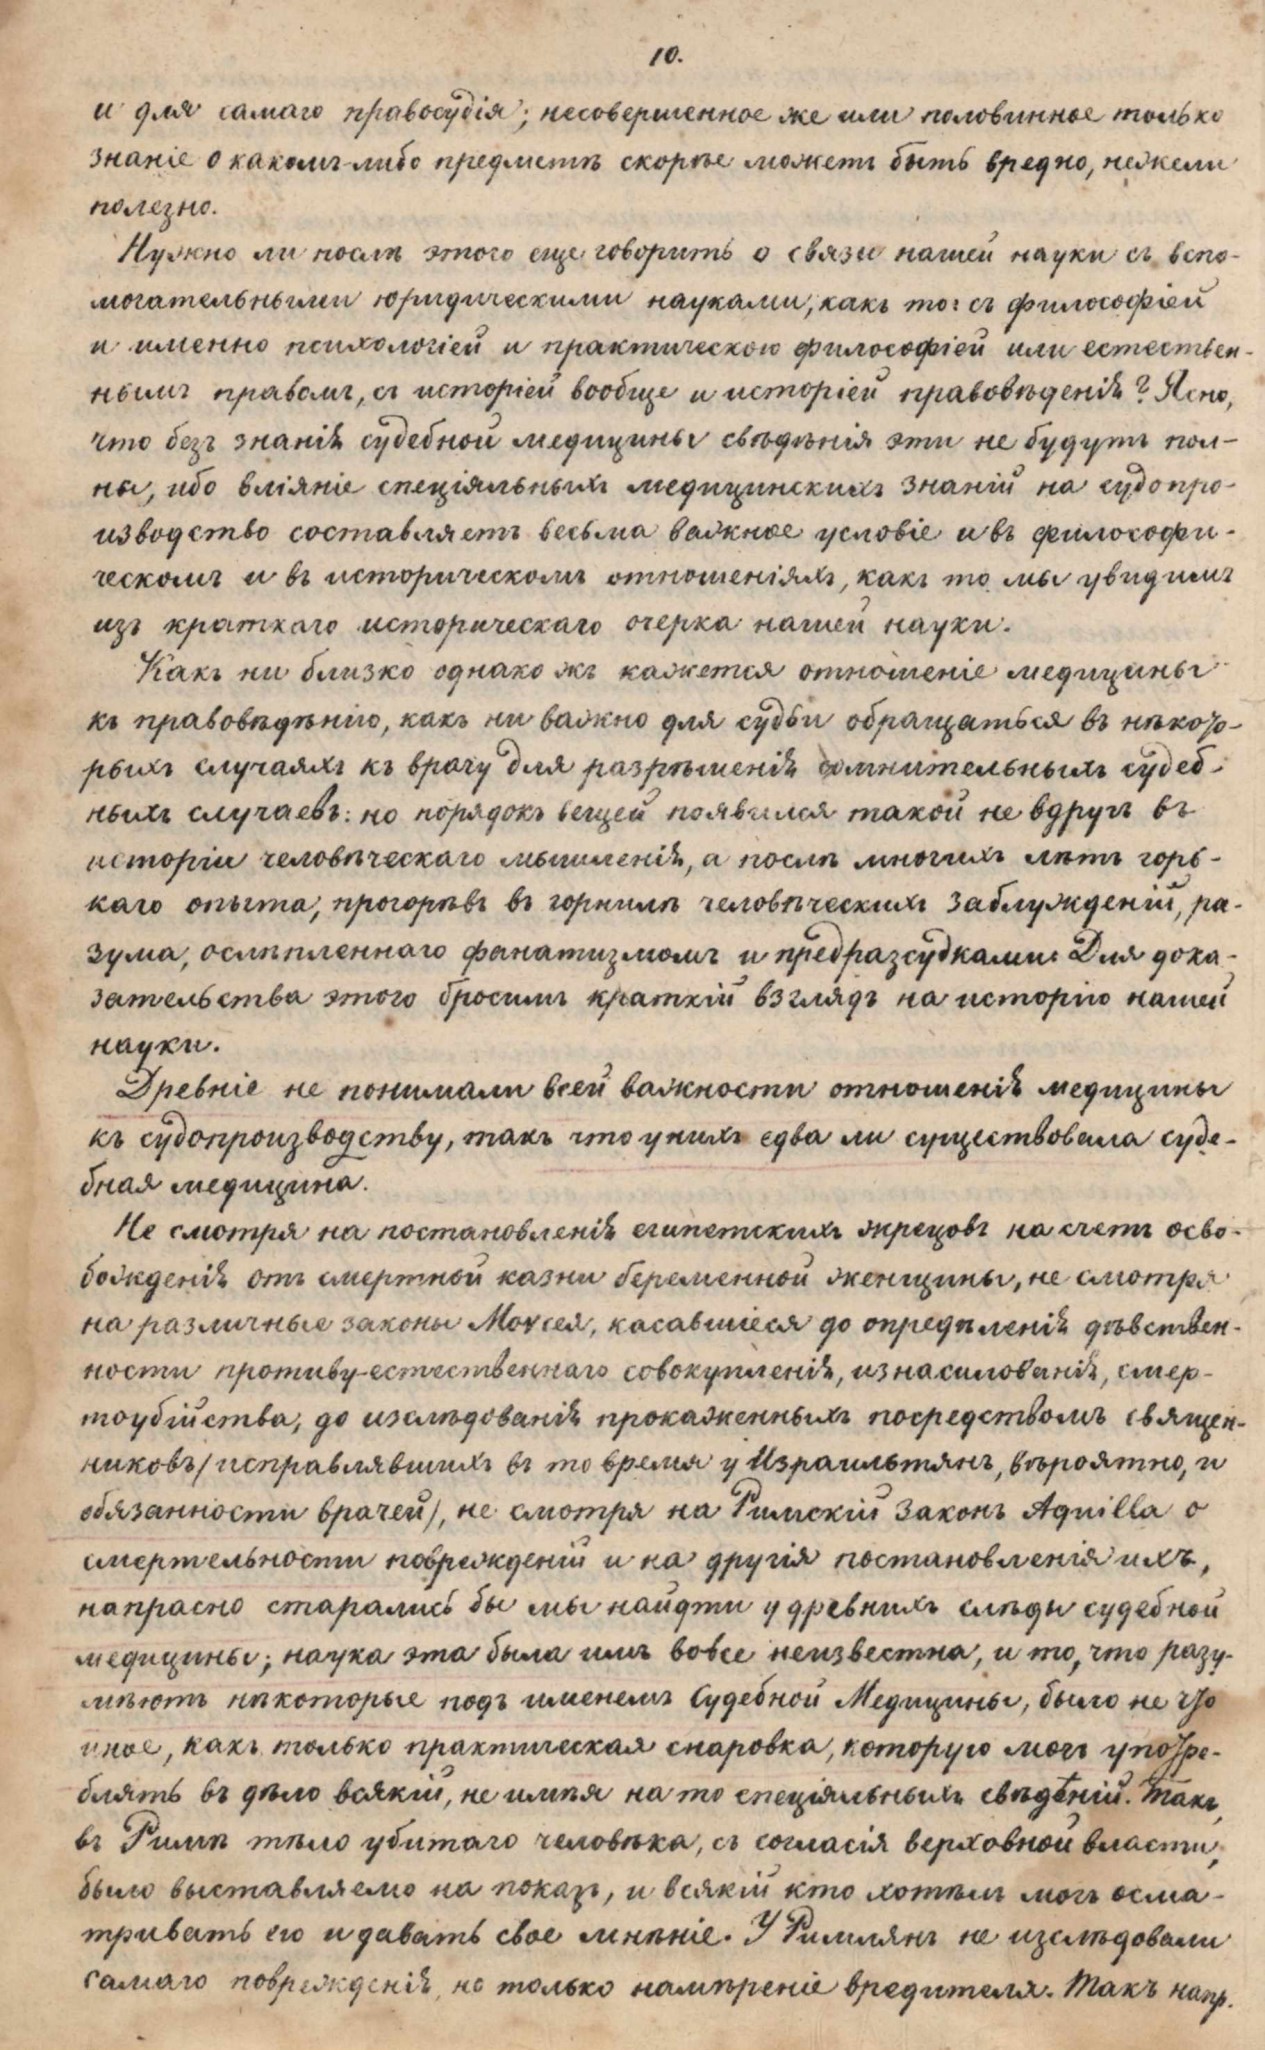 10.
и для самаго правосудія; несовершенное же или половинное только
знаніе о какомъ-либо предметѣ скорѣе можетъ быть вредно, нежели
полезно.
Нужно ли послѣ этого еще говорить о связи нашей науки съ вспо-
могательными юридическими науками, какъ то: съ философіей
и именно психологіей и практическою философіей или естествен-
нымъ правомъ, съ исторіей вообще и исторіей правовѣденія? Ясно,
что безъ знанія судебной медицины свѣдѣнія эти не будутъ пол-
ны, ибо вліяніе спеціяльныхъ медицинскихъ знаній на судопро-
изводство составляетъ весьма важное условіе и въ философи-
ческомъ и въ историческомъ отношеніяхъ, какъ то мы увидимъ
изъ краткаго историческаго очерка нашей науки.
Какъ ни близко однако жъ кажется отношеніе медицины
къ правовѣдѣнію, какъ ни важно для судьи обращаться въ нѣкото-
рыхъ случаяхъ къ врачу для разрѣшенія сомнительныхъ судеб-
ныхъ случаевъ: но порядокъ вещей появился такой не вдругъ въ
исторіи человѣческаго мышленія, а послѣ многихъ лѣтъ горь-
каго опыта, прогорѣвъ въ горнилѣ человѣческихъ заблужденій, ра-
зума, ослѣпленнаго фанатизмомъ и предразсудками. Для дока-
зательства этого бросимъ краткій взглядъ на исторію нашей
науки.
Древніе не понимали всей важности отношенія медицины
къ судопроизводству, такъ что у нихъ едва ли существовала суде-
бная медицина.
Не смотря на постановленія египетскихъ жрецовъ на счетъ осво-
божденія отъ смертной казни беременной женщины, не смотря
на различные законы Моѵсея, касавшіеся до опредѣленія дѣвствен-
ности противу-естественнаго совокупленія, изнасилованія, смер-
тоубійства, до изслѣдованія прокаженныхъ посредствомъ священ-
никовъ/исправлявшихъ въ то время у Израильтянъ, вѣроятно, и
обязанности врачей/, не смотря на Римскій законъ Aquilla о
смертельности поврежденій и на другія постановленія ихъ,
напрасно старались бы мы найдти у древнихъ слѣды судебной
медицины; наука эта была имъ вовсе неизвестна, и то, что разу-
мѣютъ нѣкоторые подъ именемъ Судебной Медицины, было не что
иное, какъ только практическая снаровка, которую могъ употре-
блять въ дѣло всякій, не имѣя на то спеціяльныхъ свѣдѣній. Такъ,
въ Римѣ тѣло убитаго человѣка, съ согласія верховной власти,
было выставляемо на показъ, и всякій кто хотѣлъ могъ осма-
тривать его и давать свое мнѣніе. У Римлянъ не изслѣдовали
самаго поврежденія, но только намѣреніе вредителя. Такъ напр.